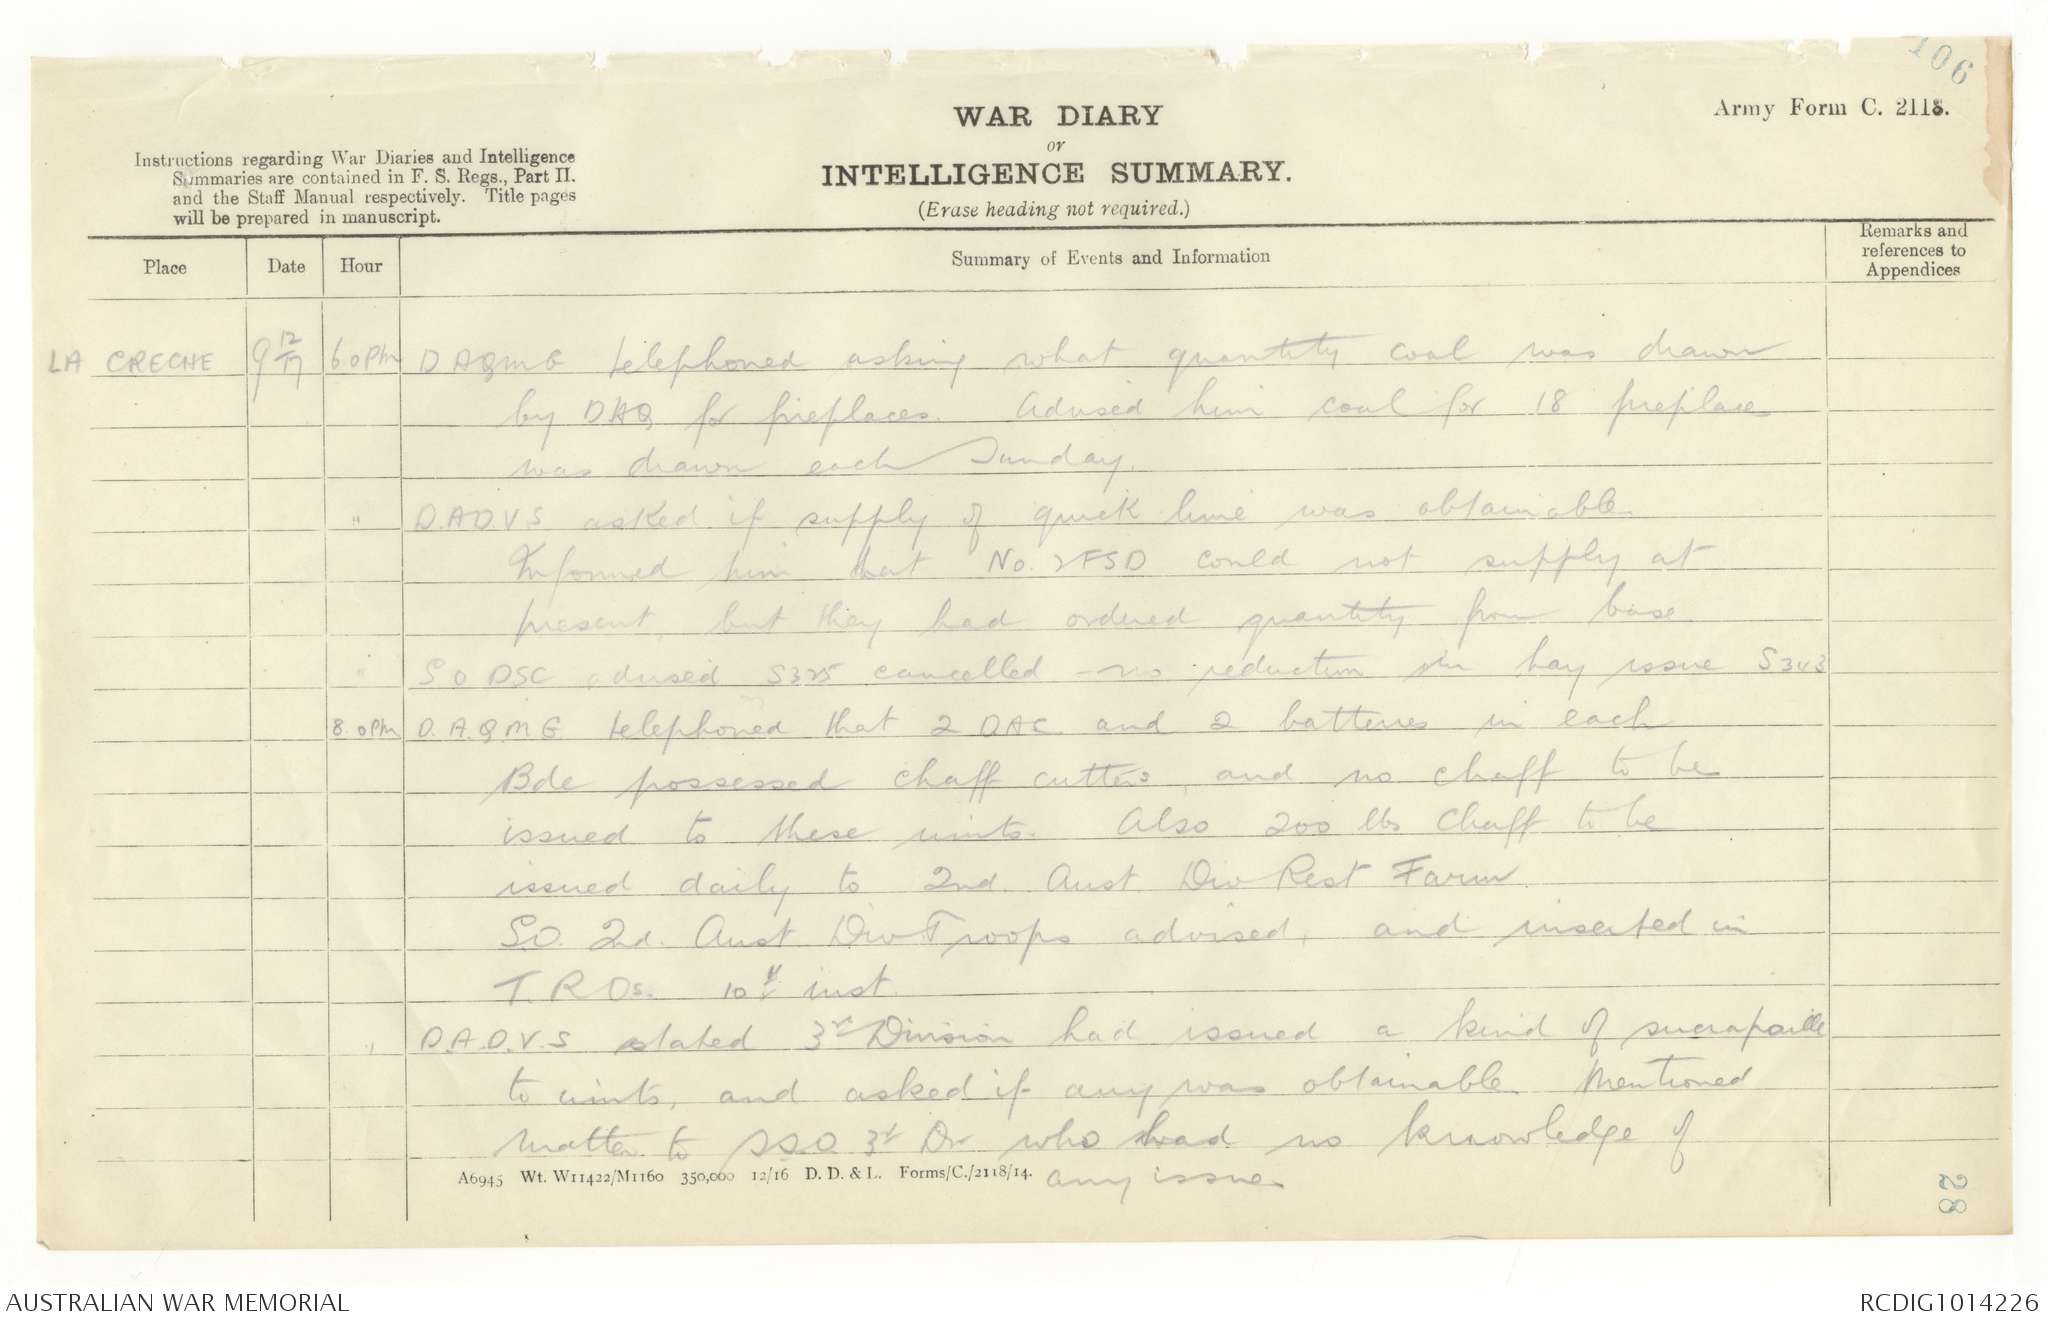 106
Army Form C. 2118.
WAR DIARY
or
INTELLIGENCE SUMMARY.
(Erase heading not required.)
Instructions regarding War Diaries and Intelligence
Summaries are contained in F. S. Regs., Part II.
and the Staff Manual respectively. Title pages
will be prepared in manuscript.
Place Date Hour Summary of Events and Information Remarks and references to Appendices
LA CRECHE 9 12/17 6.0 Pm D A Q M G telephoned asking what quantity coal was drawn
by DHQ for fireplaces. Advised him coal for 18 fireplaces
was drawn each Sunday.
" D.A.D.V.S. asked if supply of quick lime was obtainable.
Informed him that No. 2 FSD could not supply at
present, but they had ordered quantity from base
" S O DSC advised S325 cancelled - no reduction in hay issue S343
8.0 Pm D.A.Q.M.G. telephoned that 2 DAC and 2 batteries in each
Bde possessed chaff cutters, and no chaff to be
issued to these units. Also 200 lbs Chaff to be
issued daily to 2nd. Aust Div Rest Farm.
S.O. 2nd. Aust Div Troops advised, and inserted in
T.R.Os. 10th inst
" D.A.D.V.S stated 3rd Division had issued a kind of
to units, and asked if any was obtainable. Mentioned
matter to SSO 3rd Div who had no knowledge of
any issue.
A6945 Wt. W11422/M1160 350,000 12/16 D. D. & L. Forms/C./2118/14.
28
AUSTRALIAN WAR MEMORIAL
RCDIG1014226